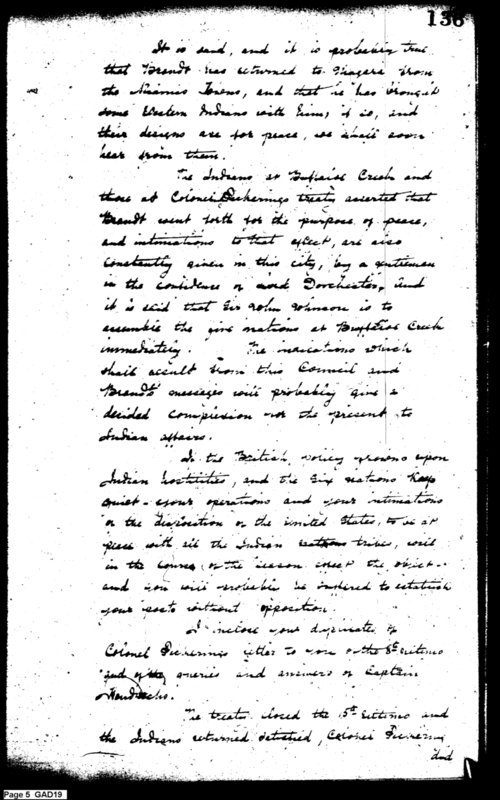 136
It is said, and it is probably true
that Brandt has returned to Niagara from
the Miamis Towns, and that he has brought
some Western Indians with him; if so, and
their designs are for peace, we shall soon
hear from them.
The Indians at Buffaloe Creek and
those at Colonel Pickerings treaty asserted that
Brandt went forth for the purpose of peace,
and intimations to that effect, are also
constantly given in this city, by a gentleman
in the confidence of Lord Dorchester, and
it is said that Sir John Johnson is to
assemble the five nations at Buffaloe Creek
immediately. The indications which
shall result from this Council and
Brandts messages will probably give a
decided complexion for the present to
Indian affairs.
If the British policy frowns upon
Indian hostilities, and the Six nations keep
quiet - your operations and your intimations
of the disposition of the United States, to be at
peace with all the Indian tribes, will
in the course of the season effect the object -
and you will probably be suffered to establish
your posts without opposition.
I inclose you duplicates of
Colonel Pickerings letter to you of the 8th ultimo
and of the queries and answers of Captain
Hendricks.
The treaty closed the 15th ultimo and
the Indians returned satisfied, Colonel Pickering
did
Page 5 GAD19